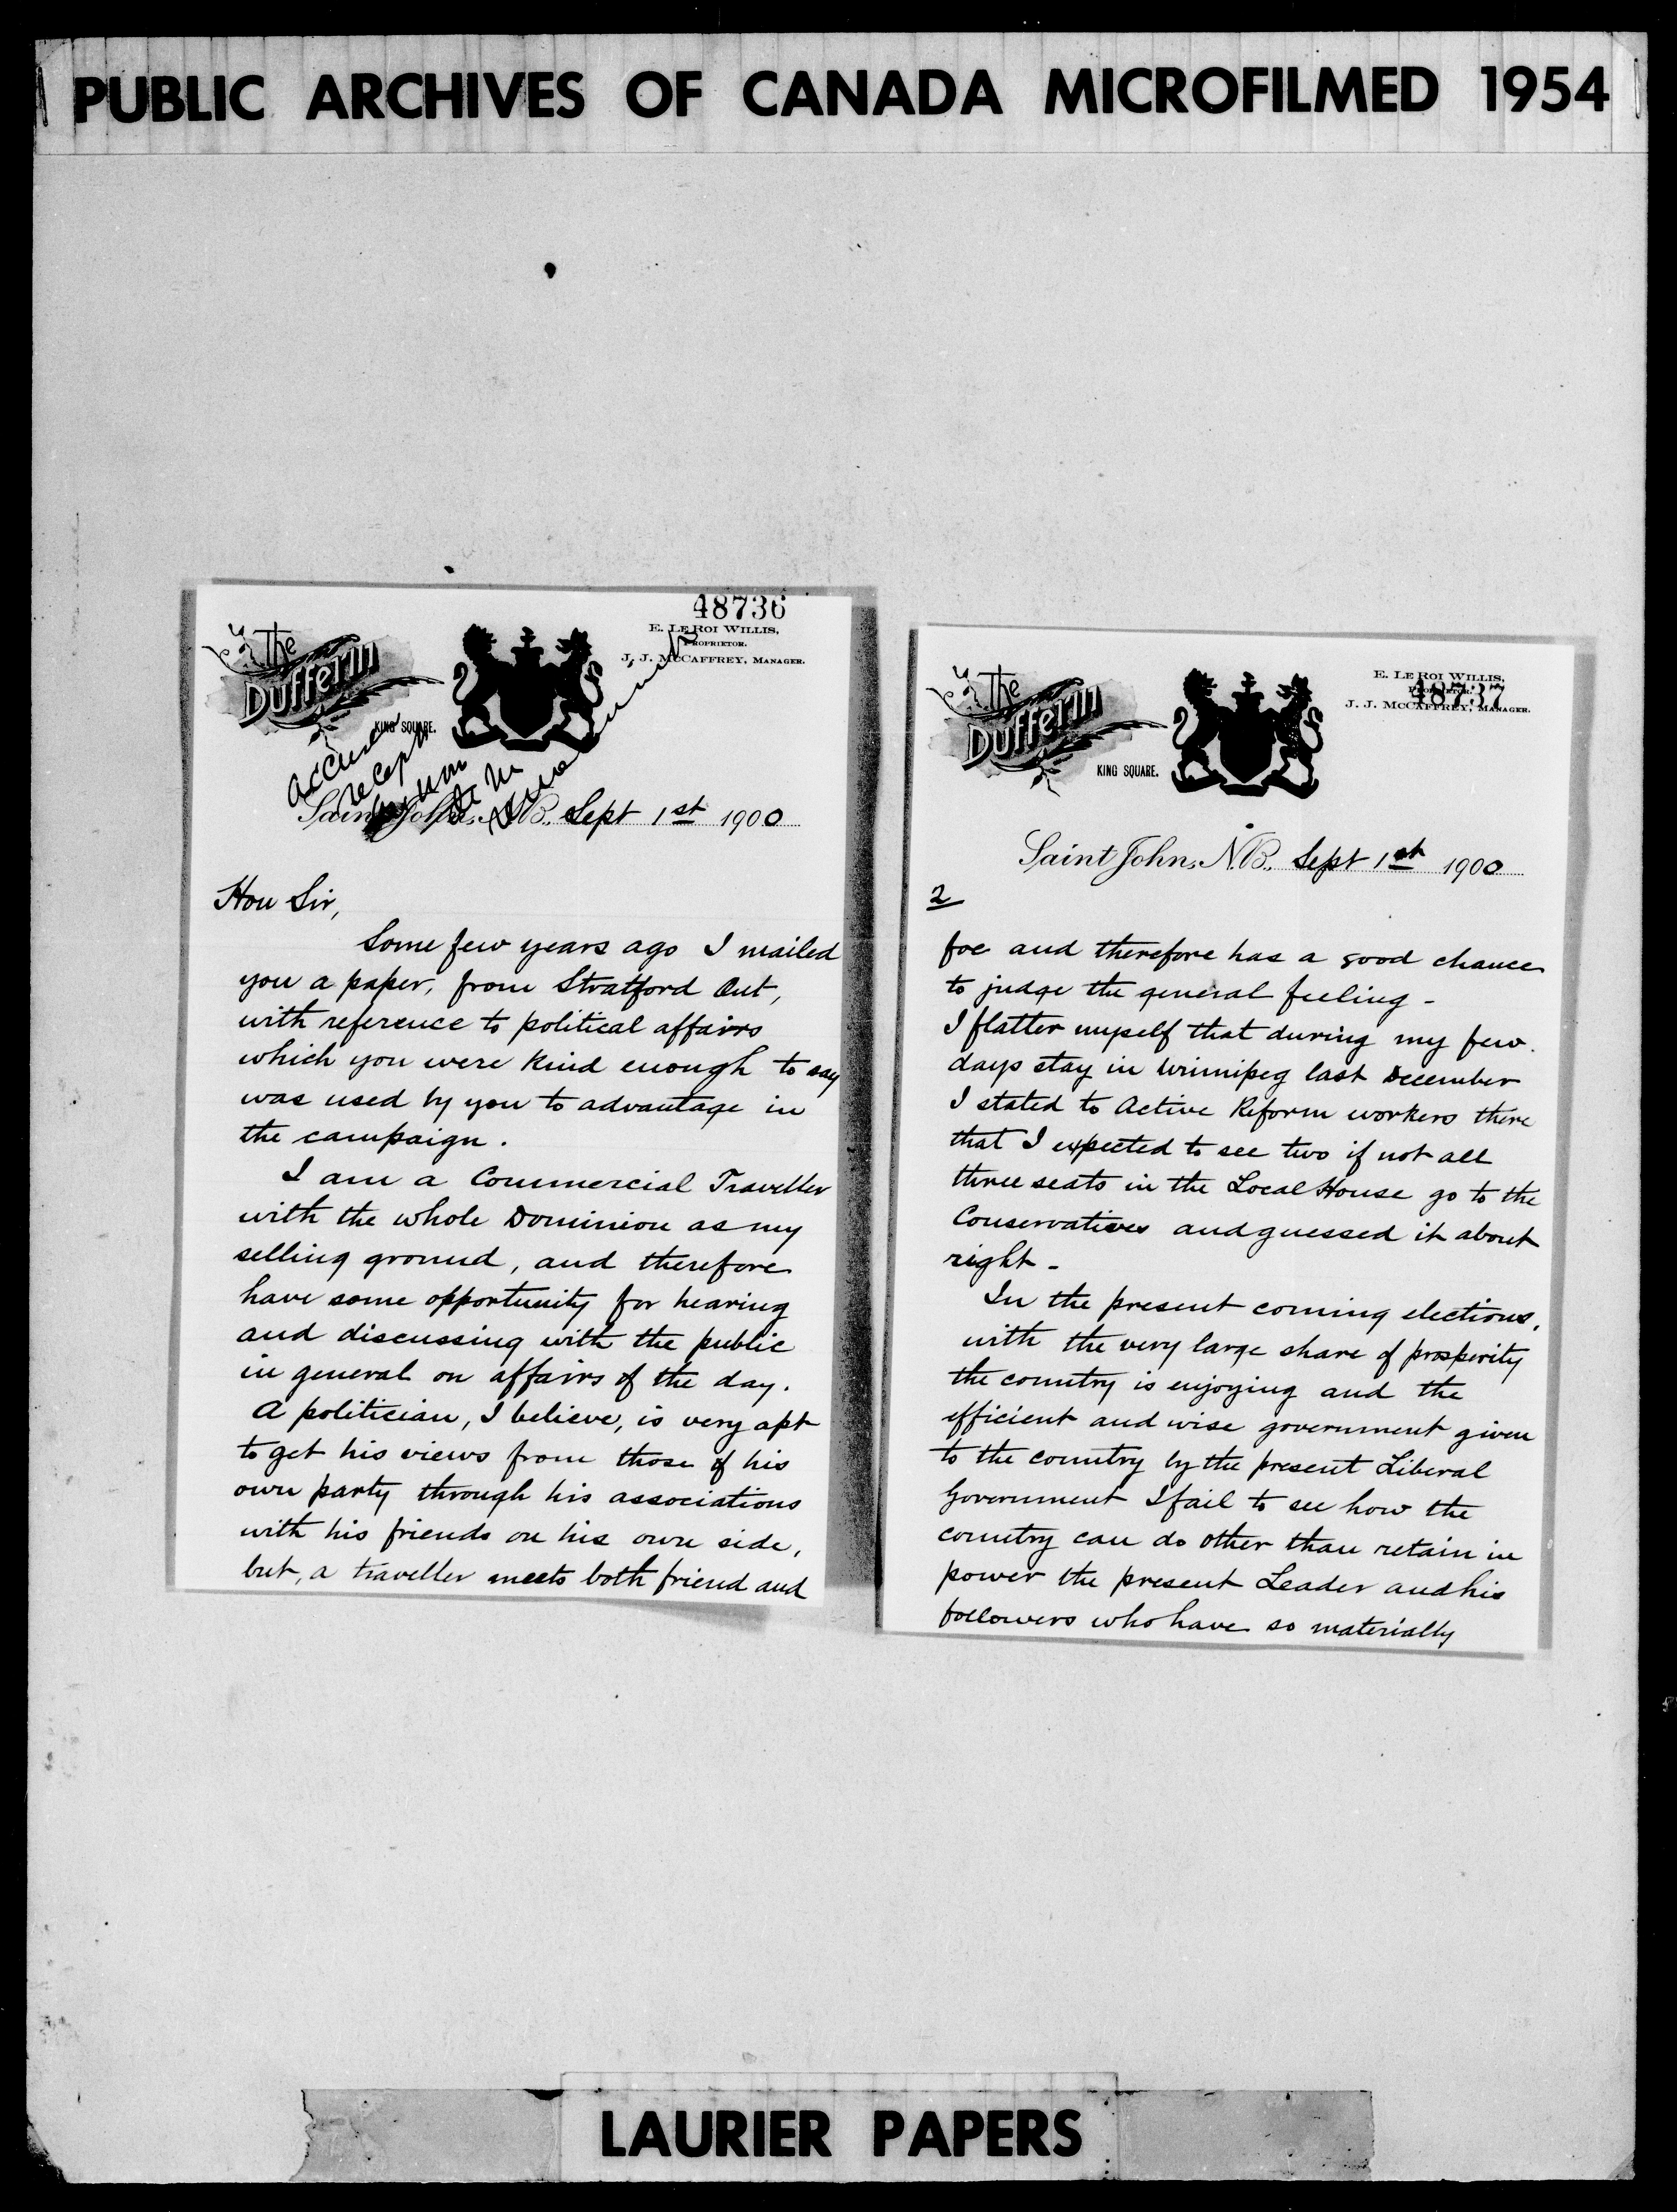 PUBLIC ARCHIVES OF CANADA MICROFILMED 1954
48736
The
Dufferin
KING SQUARE.
E. LE ROI WILLIS,
PROPRIETOR.
J. J. MCCAFFREY, MANAGER.
accuser
recept
Saint John, N.B., Sept 1st 1900
Hon Sir,
Some few years ago I mailed
you a paper, from Stratford Ont,
with reference to political affairs
which you were kind enough to say
was used by you to advantage in
the campaign.
I am a Commercial Traveller
with the whole Dominion as my
selling ground, and therefore
have some opportunity for hearing
and discussing with the public
in general on affairs of the day.
A politician, I believe, is very apt
to get his views from those of his
own party through his associations
with his friends on his own side,
but, a traveller meets both friend and
The
Dufferin
KING SQUARE.
E. LE ROI WILLIS,
PROPRIETOR.
48737
J. J. MCCAFFREY, MANAGER.
Saint John, N.B., Sept 1st 1900
2
foe and therefore has a good chance
to judge the general feeling -
I flatter myself that during my few
days stay in Winnipeg last December
I stated to Active Reform workers there
that I expected to see two if not all
three seats in the Local House go to the
Conservatives and guessed it about
right -
In the present coming elections,
with the very large share of prosperity
the country is enjoying and the
efficient and wise government given
to the country by the present Liberal
Government I fail to see how the
country can do other than retain in
power the present Leader and his
followers who have so materially
LAURIER PAPERS